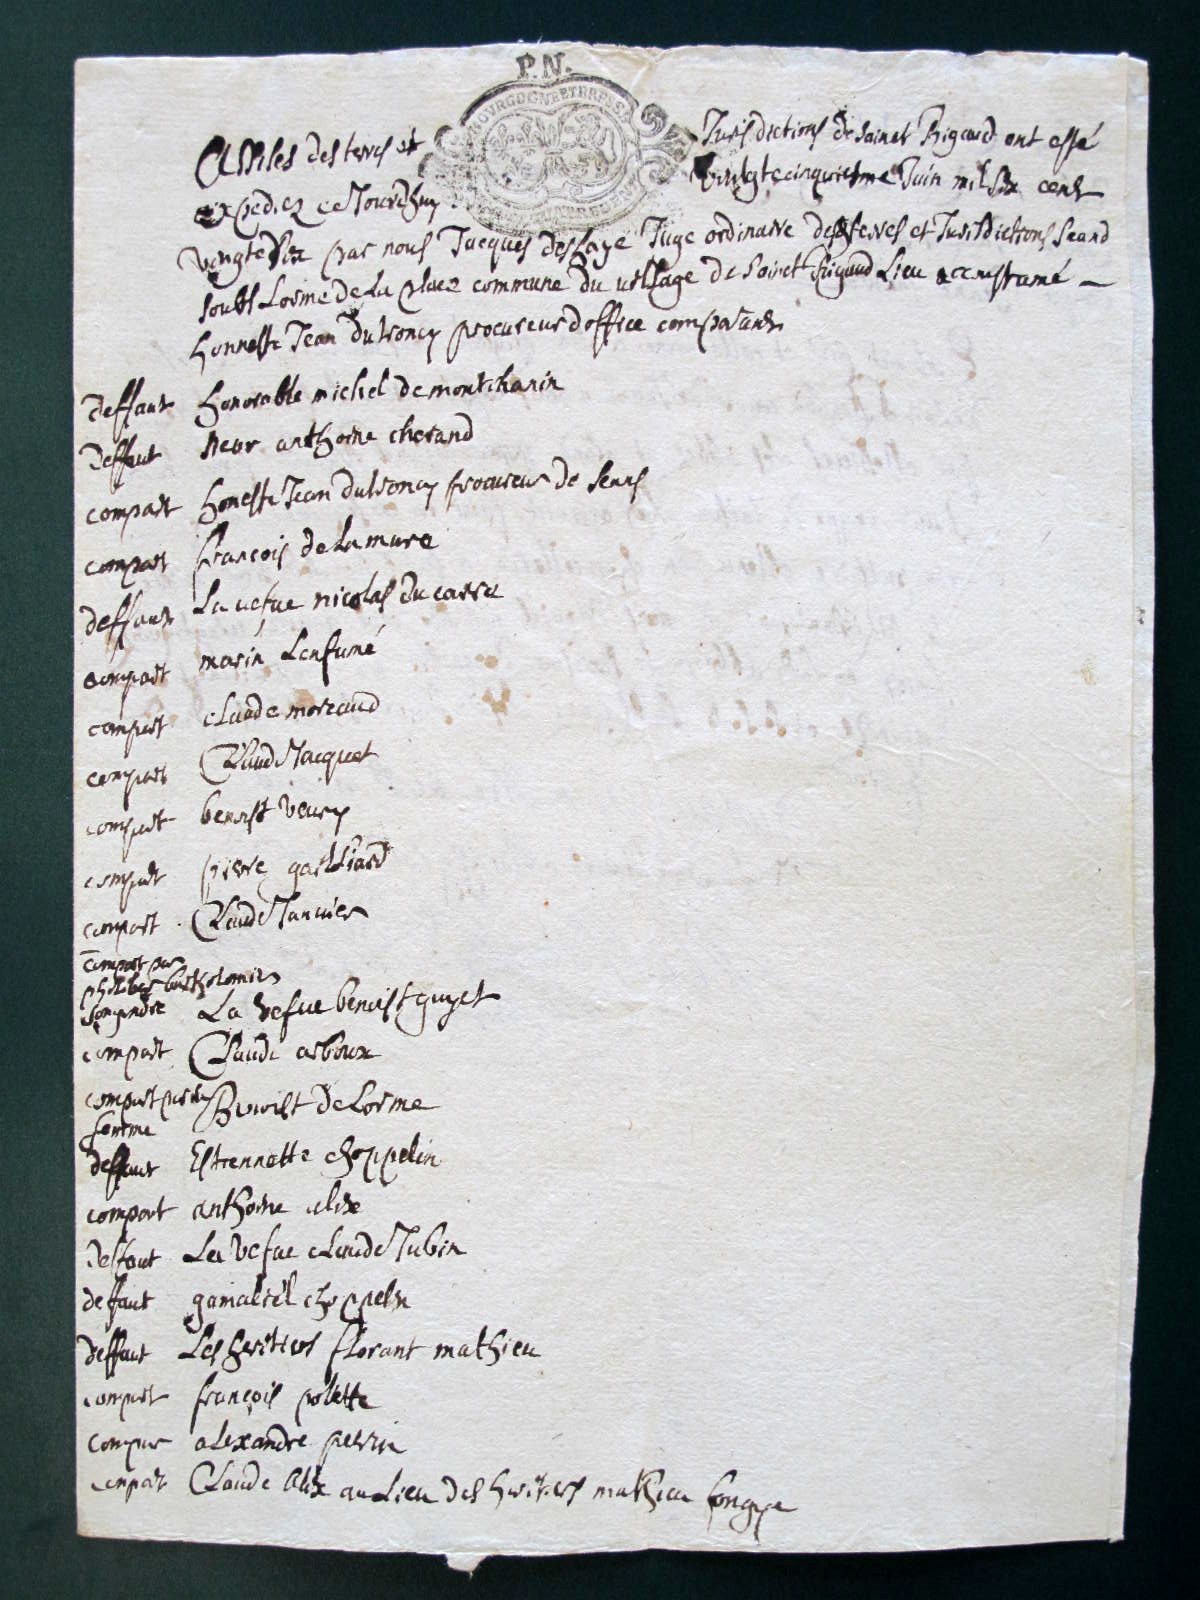 P.N.
BOURGOGNE ET BRESSE
Assises des terres et Jurisdictions de Sainct Rigaud ont esté
expediez ce Jourdhuy vingtcinquiesme Juin mil six cent
vingtesix par nous Jacques deslaye Juge ordinaire des terres et Jurisdictions seand
soubs Lorme de La place commune du village de Sainct Rigaud Lieu accoustumé
honneste Jean dutroncy procureur doffice comparant
deffaut honorable michel de montchanin
deffaut sieur anthoine cherand
compart honeste Jean dutroncy procureur de ceans
compart françois de La mure
deffaut La vefue nicolas du carre
compart marin Lenfumé
compart claude moreaud
compart Claude Jacquet
compart benoist veury
compart pierre gailliard
compart Claude Janvier
compart par
philibert bartholomier
son gendre La vefue benoist guyet
compart Claude arboux
compart par sa
femme Benoist de Lorme
deffaut Estiennette choppelin
compart anthoine alix
deffaut La vefue claude Jubin
deffaut gamaliel choppelin
deffaut Les heritiers florant mathieu
compart françois polette
compart alexandre perrin
compart Claude Alix au Lieu des heritiers mathieu